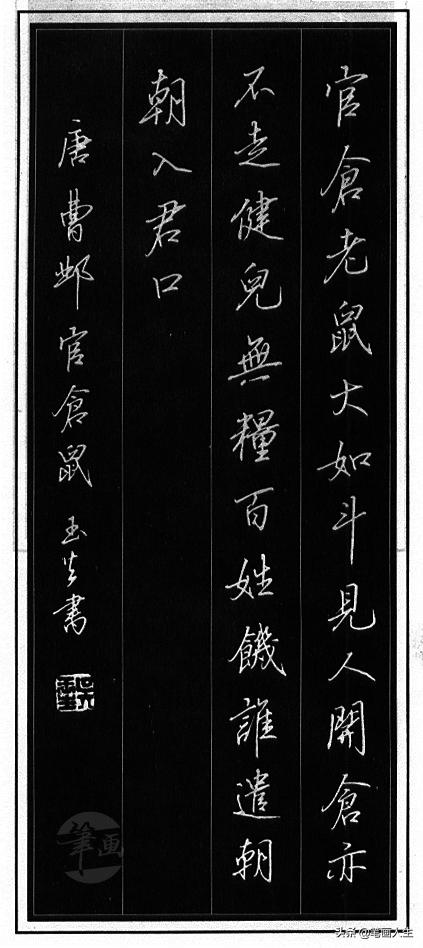 官倉老鼠大如斗見人開倉亦
不走健兒無糧百姓饑誰遣朝
朝入君口
唐曹邺官倉鼠玉生書
筆画
头条@笔画人生